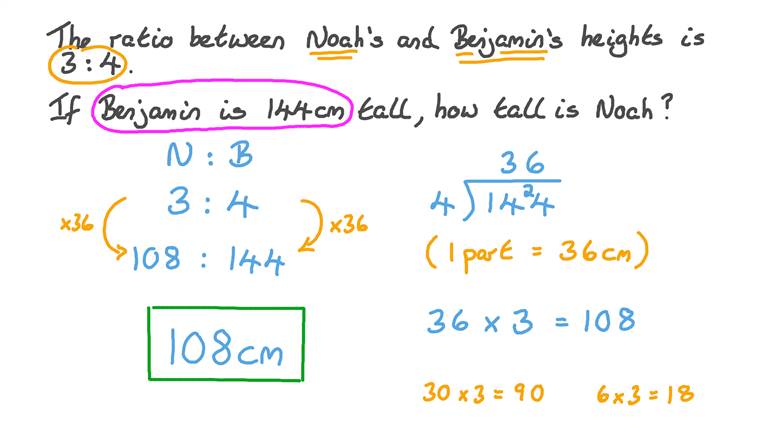 The ratio between Noah's and Benjamin's heights is
3 : 4.
If Benjamin is 144cm tall, how tall is Noah?
N : B
3 : 4
×36
×36
108 : 144
108cm
36
4 ) 14²4
(1 part = 36cm)
36 × 3 = 108
30 × 3 = 90
6 × 3 = 18